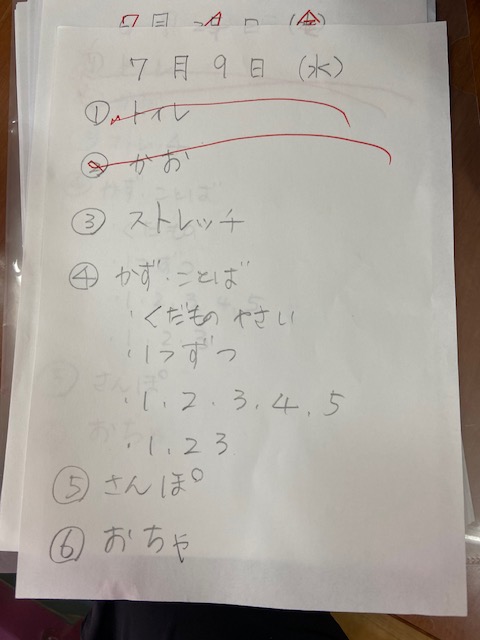 7月9日(水)
①トイレ
②かお
③ストレッチ
④かず・ことば
・くだもの やさい
・1つずつ
・1.2.3.4.5
・1.23
⑤さんぽ
⑥おちゃ